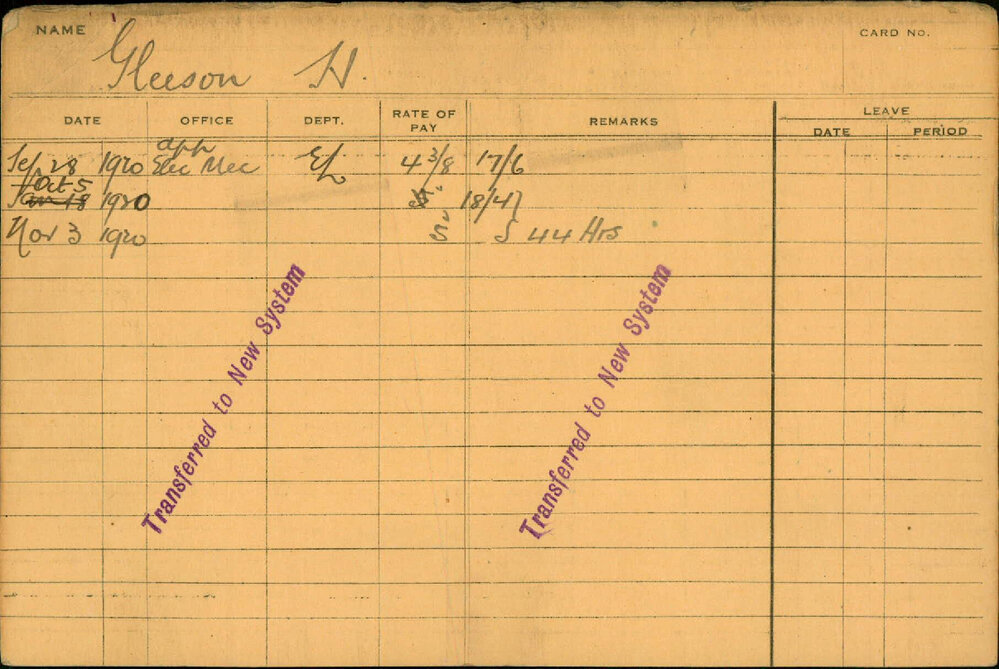 NAME
CARD NO.
Gleeson H.
DATE OFFICE DEPT. RATE OF PAY REMARKS LEAVE
DATE PERIOD
app
Sep. 28 1920 Elec Mec EL 4 3/8 17/6
Oct 5
Jan 18 1920 18/4
Nov 3 1920 5 44 Hrs
Transferred to New System
Transferred to New System